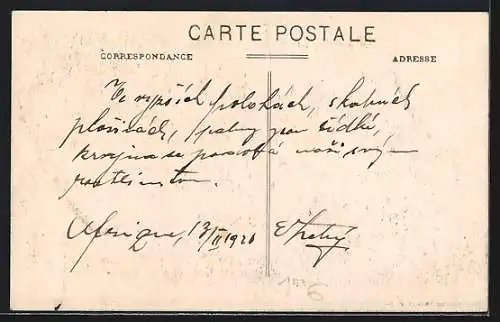 CARTE POSTALE
CORRESPONDANCE
ADRESSE
Ve vyšších polohách,
plošinách, palmy jsou řídké,
krajina se podobá naší svým
rostlinstvem.
Afrique, 13/II 1920